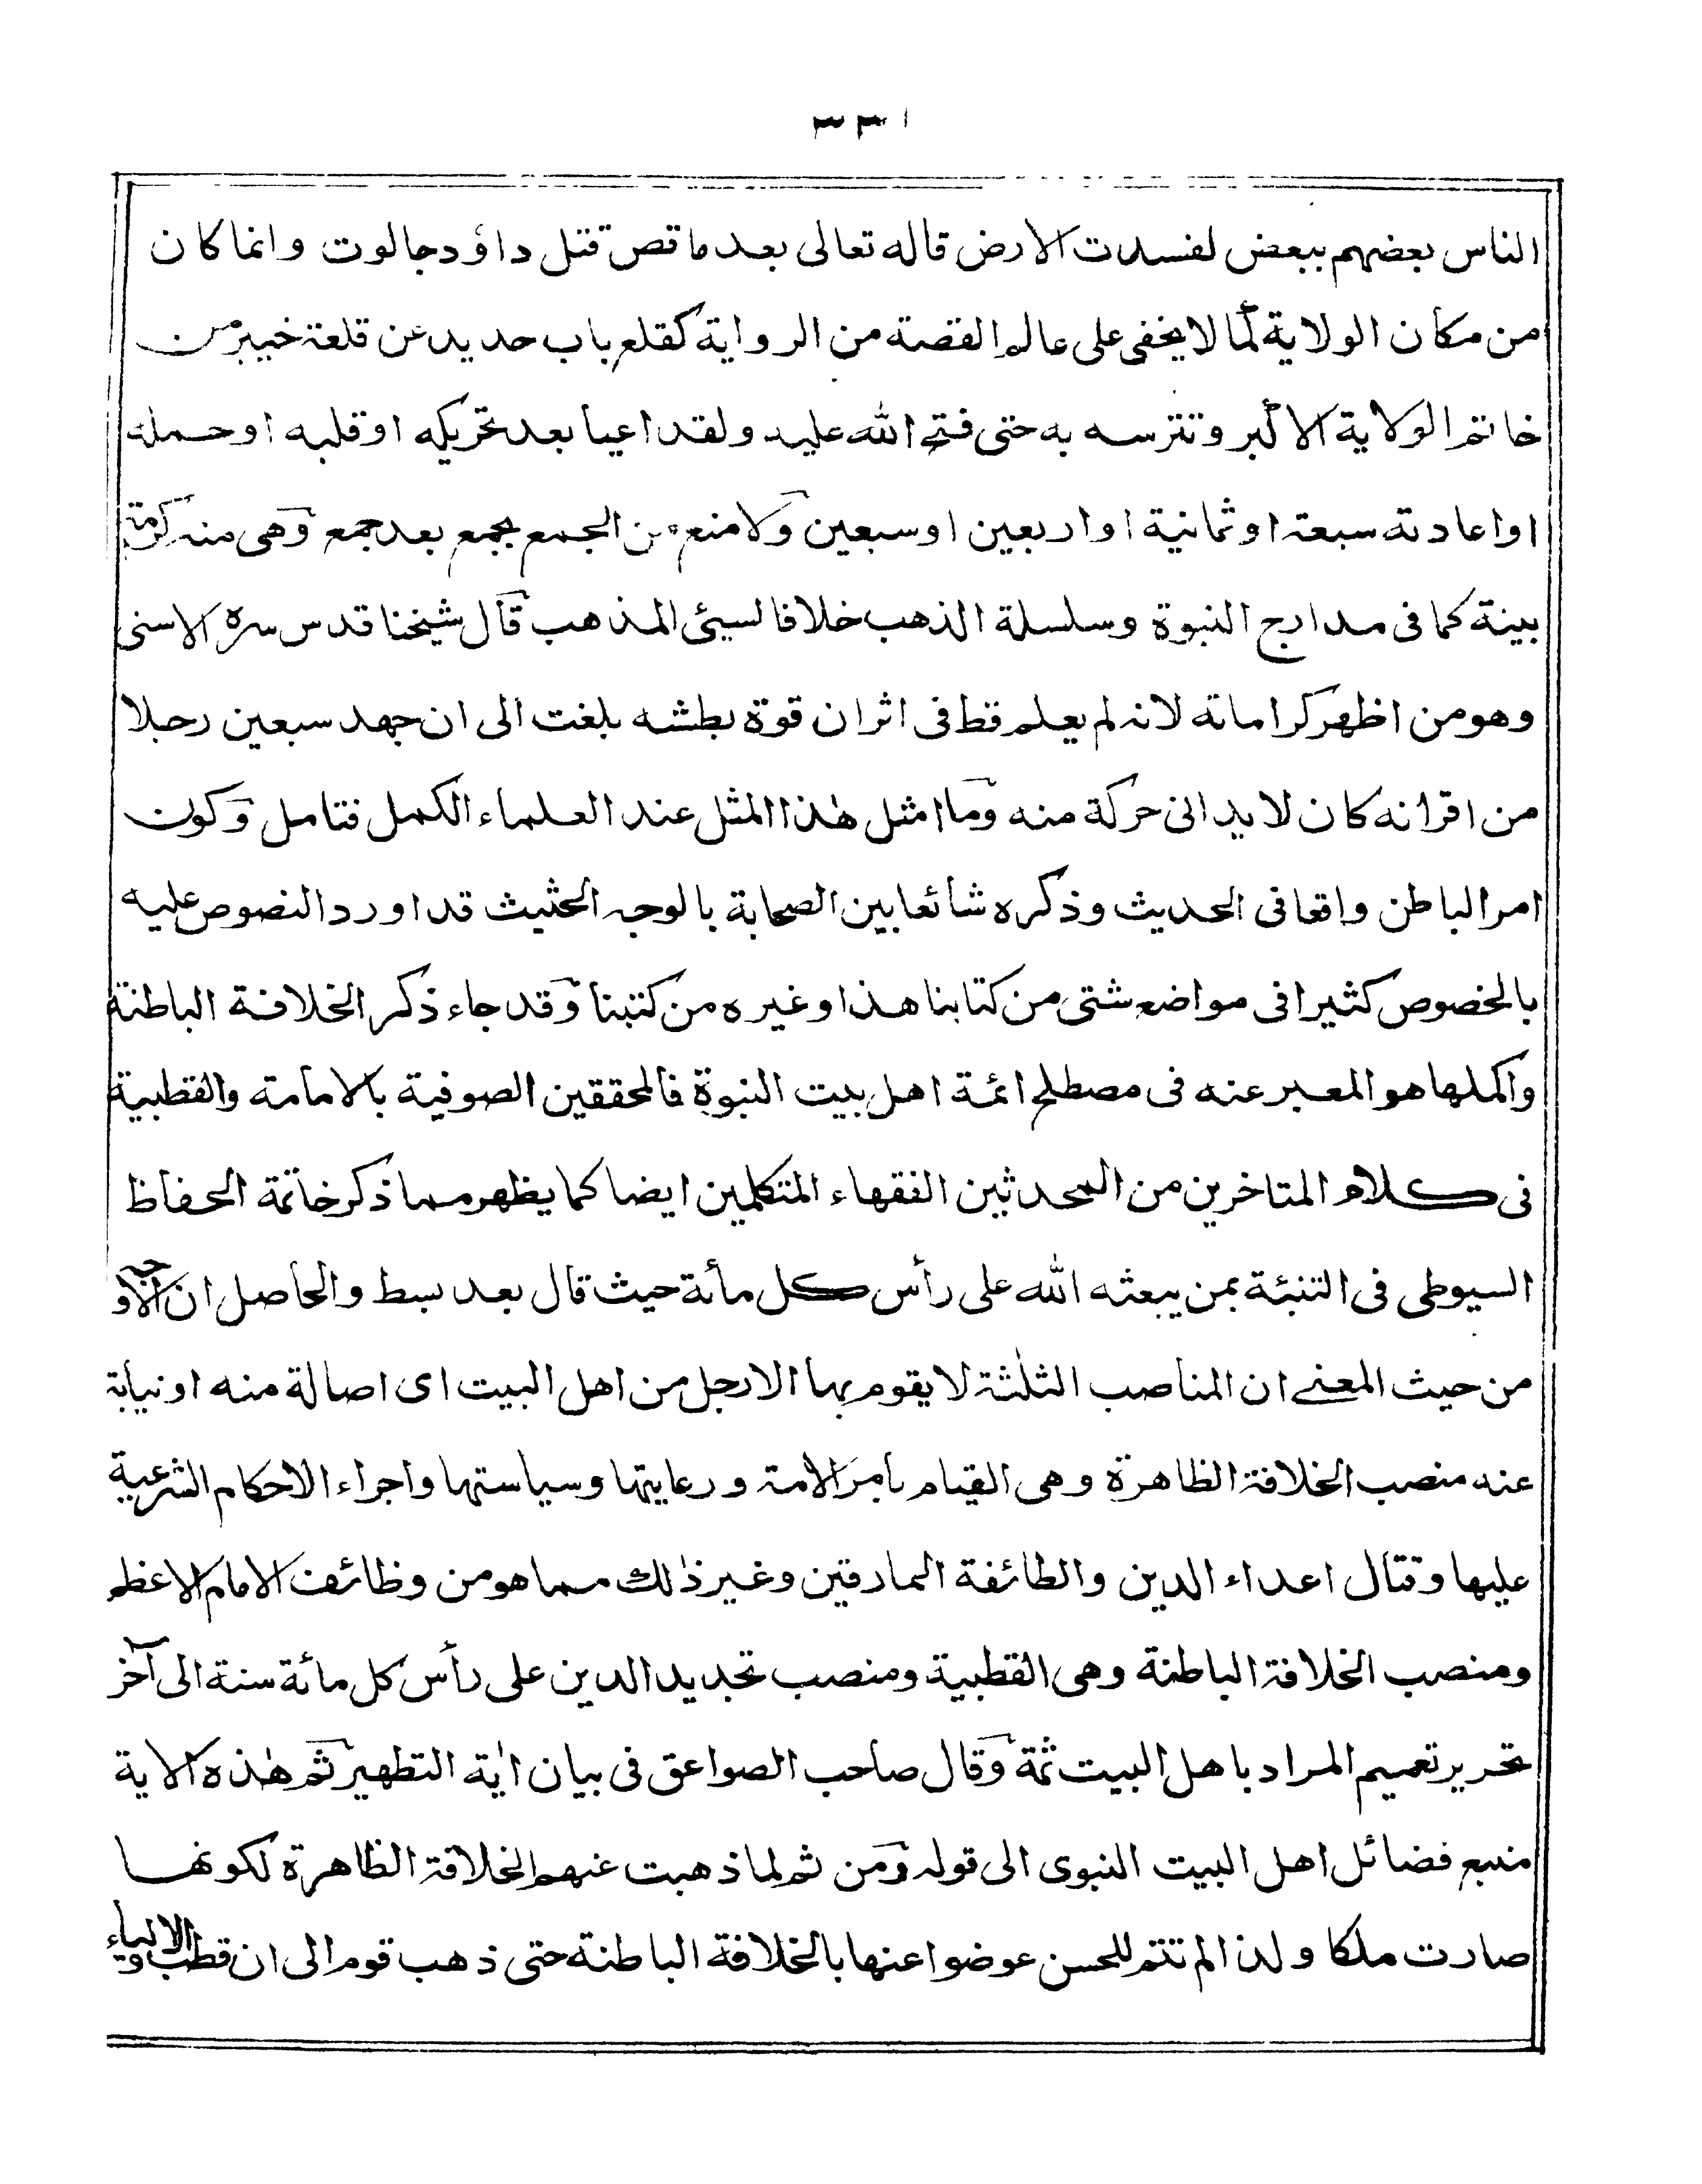 ٣٣١
الناس بعضهم ببعض لفسدت الارض قاله تعالى بعد ما قص قتل داؤد جالوت وانما كان
من مكان الولاية كما لا يخفى على عالم القصة من الرواية كقلع باب حديد عن قلعة خيبر من
خاتم الولاية الاكبر وتترسه به حتى فتح الله عليه ولقد اعيا بعد تحريكه او قلبه او حمله
او اعادته سبعة او ثمانية او اربعين او سبعين ولا منع من الجمع بجمع بعد جمع وهى منه كرامة
بينة كما فى مدارج النبوة وسلسلة الذهب خلافا لسيئ المذهب قال شيخنا قدس سره الاسنى
وهو من اظهر كراماته لانه لم يعلم قط فى اثر ان قوة بطشه بلغت الى ان جهد سبعين رجلا
من اقرانه كان لا يدانى حركة منه وما امثل هٰذا المثل عند العلماء الكمل فتامل وكون
امر الباطن واقعا فى الحديث وذكره شائعا بين الصحابة بالوجه الحثيث قد اورد النصوص عليه
بالخصوص كثيرا فى مواضع شتى من كتابنا هذا وغيره من كتبنا وقد جاء ذكر الخلافة الباطنة
واكملها هو المعبر عنه فى مصطلح ائمة اهل بيت النبوة فالمحققين الصوفية بالامامة والقطبية
فى كلام المتاخرين من المحدثين الفقهاء المتكلمين ايضا كما يظهر مما ذكر خاتمة الحفاظ
السيوطى فى التنبئة بمن يبعثه الله على رأس كل مأئة حيث قال بعد بسط والحاصل ان الاوجه
من حيث المعنى ان المناصب الثلٰثة لا يقوم بها الا رجل من اهل البيت اى اصالة منه او نيابة
عنه منصب الخلافة الظاهرة وهى القيام بامر الامة ورعايتها وسياستها واجراء الاحكام الشرعية
عليها وقتال اعداء الدين والطائفة المارقين وغير ذٰلك مما هو من وظائف الامام الاعظم
ومنصب الخلافة الباطنة وهى القطبية ومنصب تجديد الدين على رأس كل مائة سنة الى آخر
تحرير تعميم المراد باهل البيت ثمة وقال صاحب الصواعق فى بيان اٰية التطهير ثم هٰذه الاية
منبع فضائل اهل البيت النبوى الى قوله ومن ثم لما ذهبت عنهم الخلافة الظاهرة لكونها
صارت ملكا ولذا لم تتم للحسن عوضوا عنها بالخلافة الباطنة حتى ذهب قوم الى ان قطب الاولياء